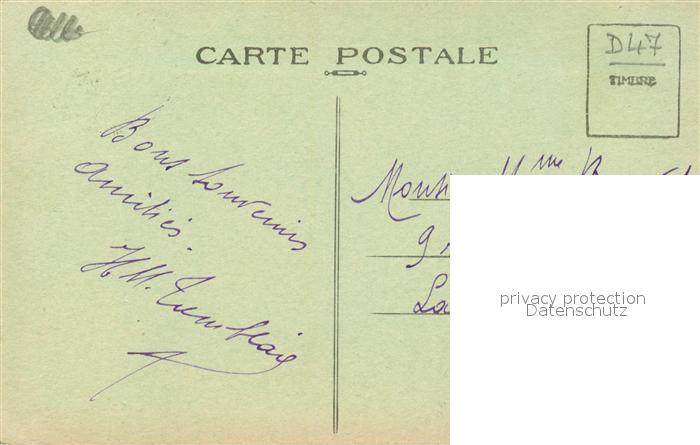 CARTE POSTALE
D47
TIMBRE
Bons souvenirs
Amitiés.
H M.
Mme
9
La
privacy protection
Datenschutz